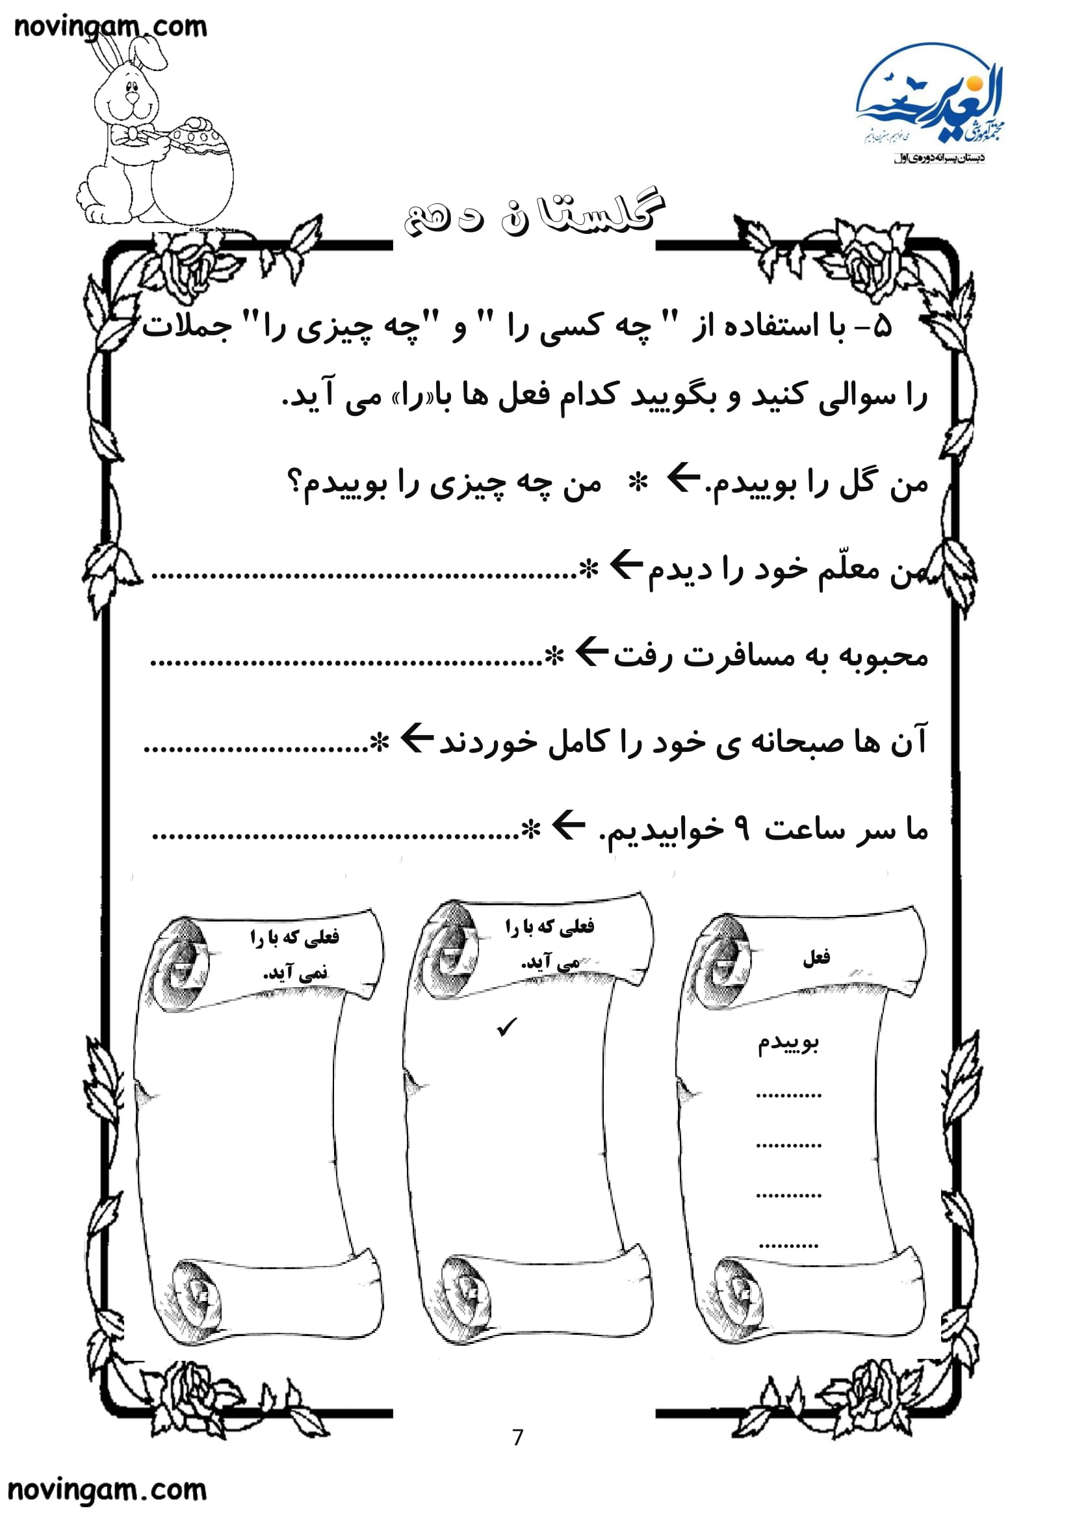 novingam.com
الغدیر
مجتمع آموزشی
می خواهیم بهترین باشیم
دبستان پسرانه دوره‌ی اول
© Carson-Dellosa
گلستان دهم
۵- با استفاده از " چه کسی را " و "چه چیزی را" جملات
را سوالی کنید و بگویید کدام فعل ها با«را» می آید.
من گل را بوییدم.← * من چه چیزی را بوییدم؟
من معلّم خود را دیدم← *....................................................
محبوبه به مسافرت رفت← *................................................
آن ها صبحانه ی خود را کامل خوردند← *............................
ما سر ساعت ۹ خوابیدیم. ← *.............................................
فعل
بوییدم
...........
...........
...........
..........
فعلی که با را
می آید.
✓
فعلی که با را
نمی آید.
7
novingam.com